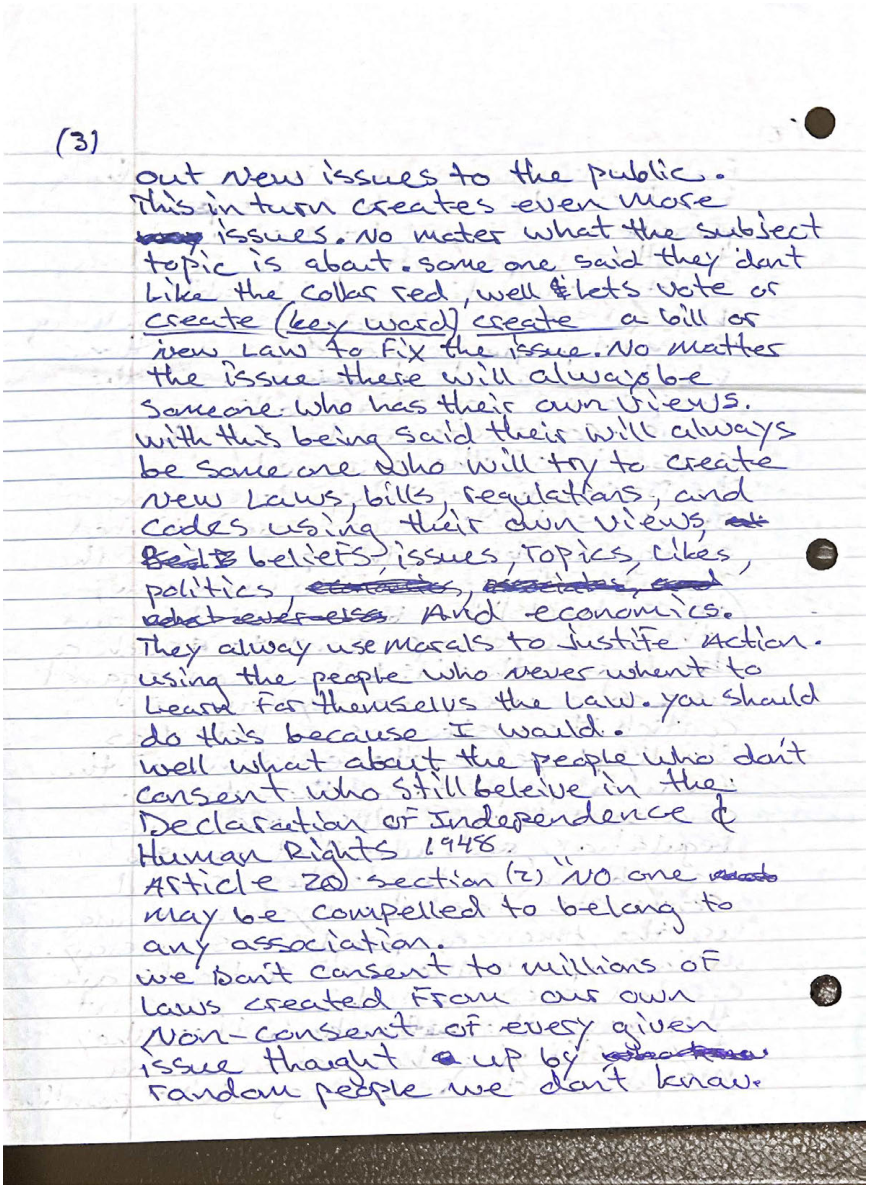 (3)
out new issues to the public.
This in turn creates even more
issues. No mater what the subject
topic is about. some one said they dont
Like the collar red, well lets vote or
create (key word) create a bill or
new Law to Fix the issue. No matter
the issue there will always be
someone who has their own views.
with this being said their will always
be some one who will try to create
new Laws, bills, regulations, and
codes using their own views,
beliefs, issues, Topics, Likes,
politics, And economics.
They alway use morals to justife Action.
using the people who never whent to
Learn For themselvs the Law. you should
do this because I would.
well what about the people who don't
consent who still beleive in the
Declaration of Independence &
Human Rights 1948
Article 20 section (2) "NO one
may be compelled to belong to
any association.
we Don't consent to millions of
Laws created From our own
Non-consent of every given
issue thought up by
random people we don't know.